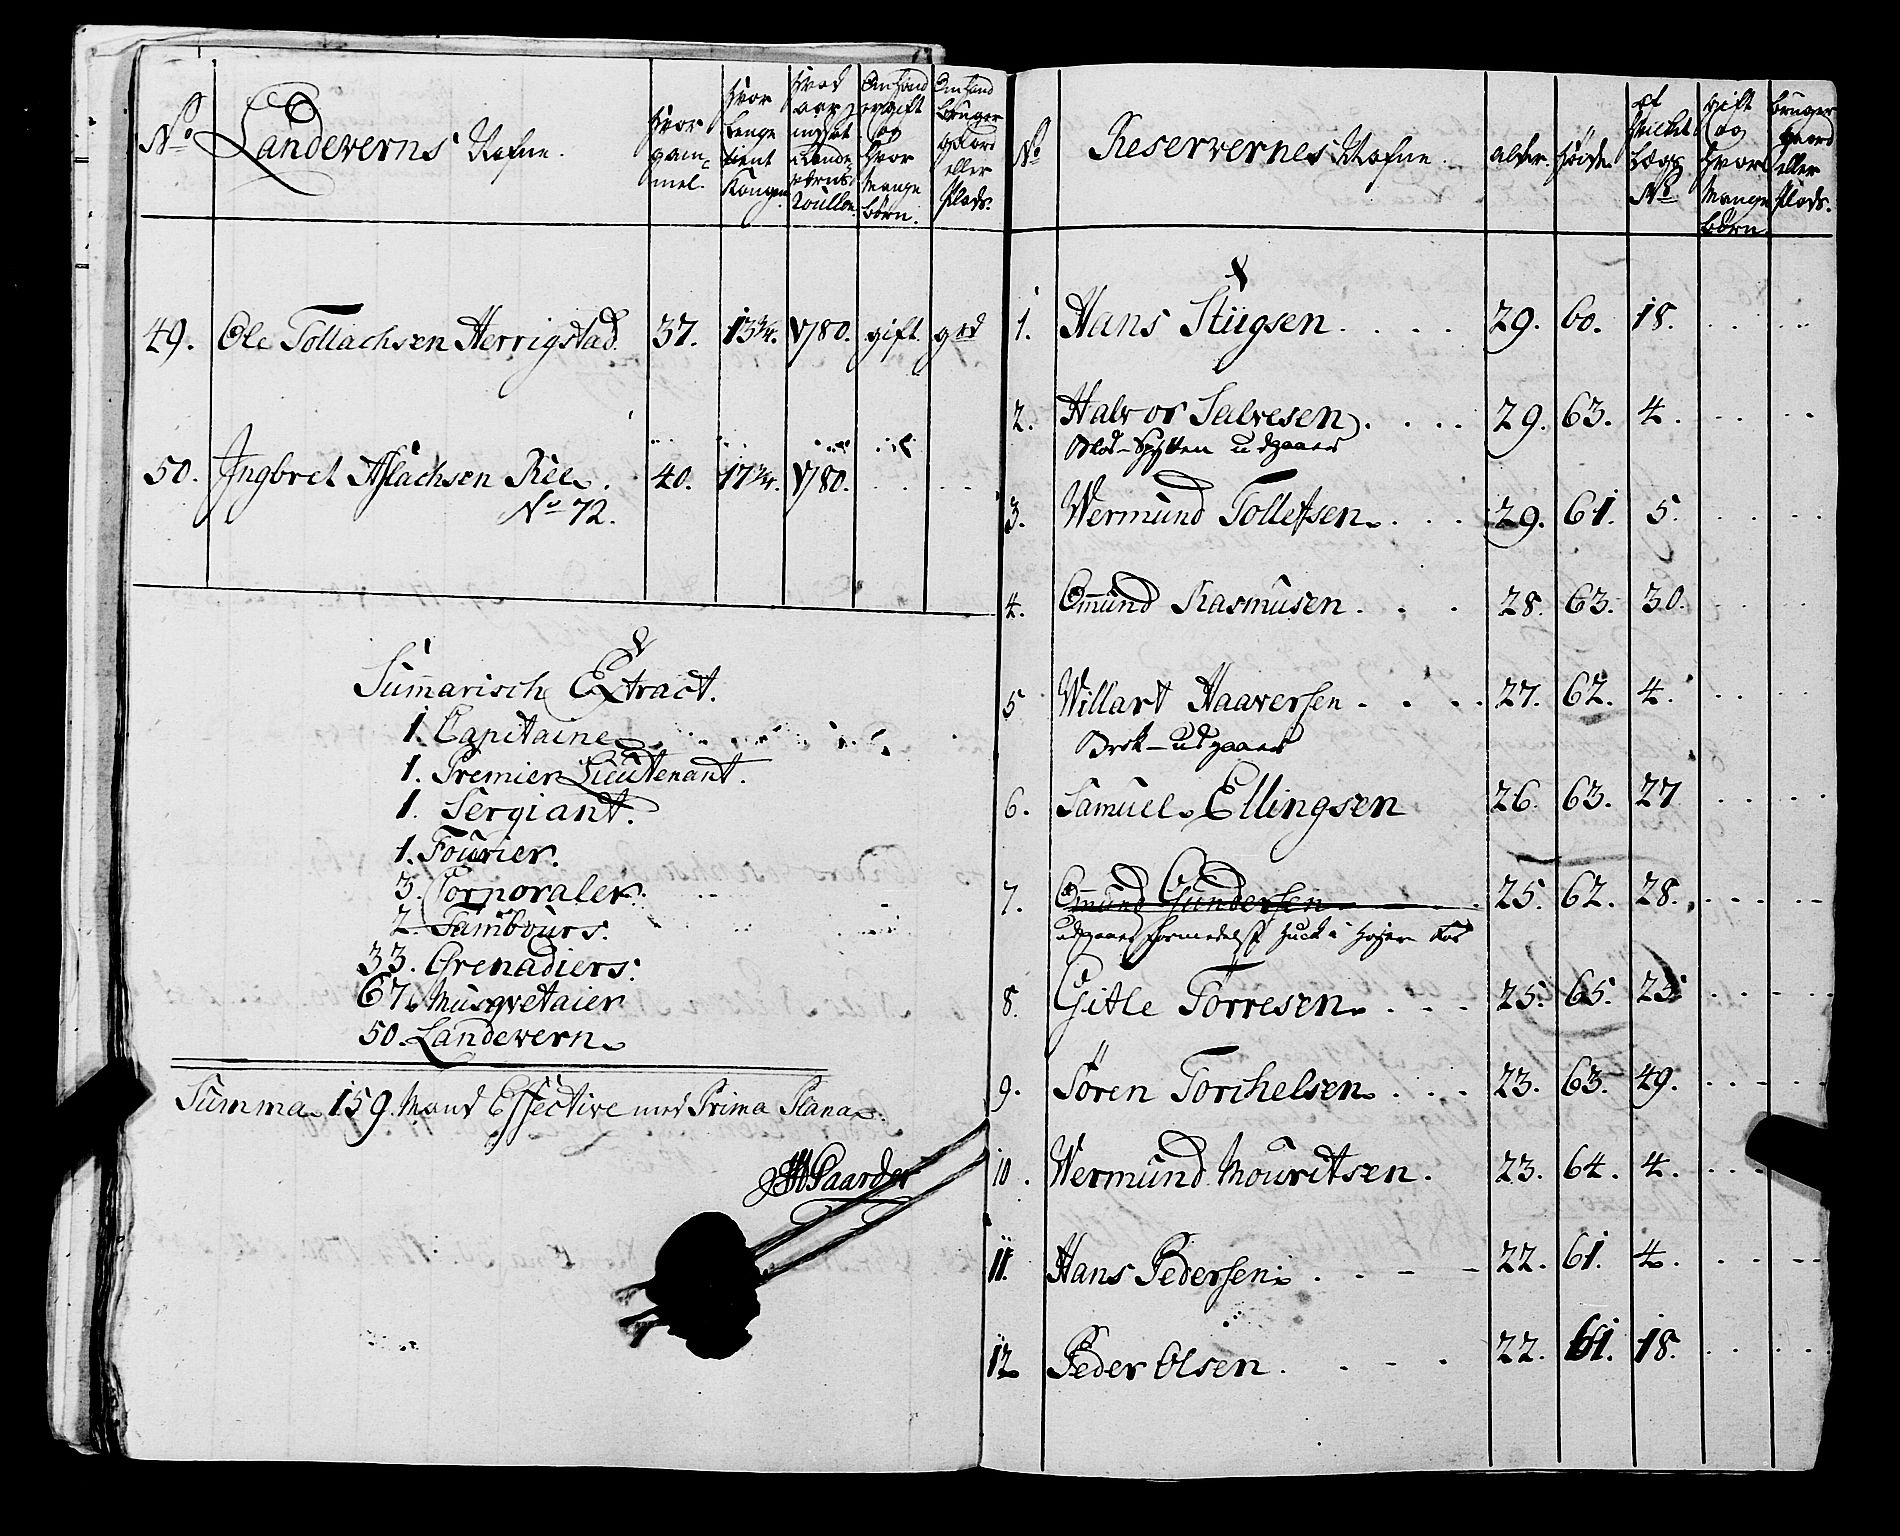 No
Landeverns Nafne.
Hvor
gam=
mel.
Hvor
lenge
tient
Kongen
Hvad
aar
indsat
i Lande
verns
Roullen
Om Hand
er gift
og
Hvor
Mange
Børn.
Om Hand
Bruger
gaard
eller
Plads.
49. Ole Tollachsen Herrigstad. 37. 13 3/4. 1780. gift. grd
50. Ingbret Aslachsen Ree. 40. 17 3/4. 1780.
No 72.
Sum̄arisch Extract.
1. Capitaine
1. Premier Lieutenant.
1. Sergiant.
1. Fourier.
3. Corporaler.
2. Tambours.
33. Grenadiers.
67. Musqvetaier
50. Landevern
Summa 159. Mand Effective med Prima Plana.
No
Reservernes Nafne.
alder.
Høide
af
Hvilket
Lægs
No
gift
og
Hvor
Mange
Børn
Bruger
gaard
eller
Plads.
1. Hans Stiigsen. 29. 60. 18.
2. Halvor Salvesen. 29. 63. 4.
Blod-Spytten udgaaer
3. Wermund Tollefsen. 29. 61. 5.
4. Om̄und Rasmusen. 28. 63. 30.
5 Willart Haaversen. 27. 62. 4.
Brok-udgaaer
6. Samuel Ellingsen 26. 63. 27
7. Om̄und Gundersen 25. 62. 28.
udgaaer formedelst Huck i Højer
8. Gitle Torresen. 25. 65. 25
9. Sören Torchelsen. 23. 63. 49.
10. Wermund Mouritsen. 23. 64. 4.
11. Hans Pedersen. 22. 61. 4.
12 Peder Olsen. 22. 61. 18.